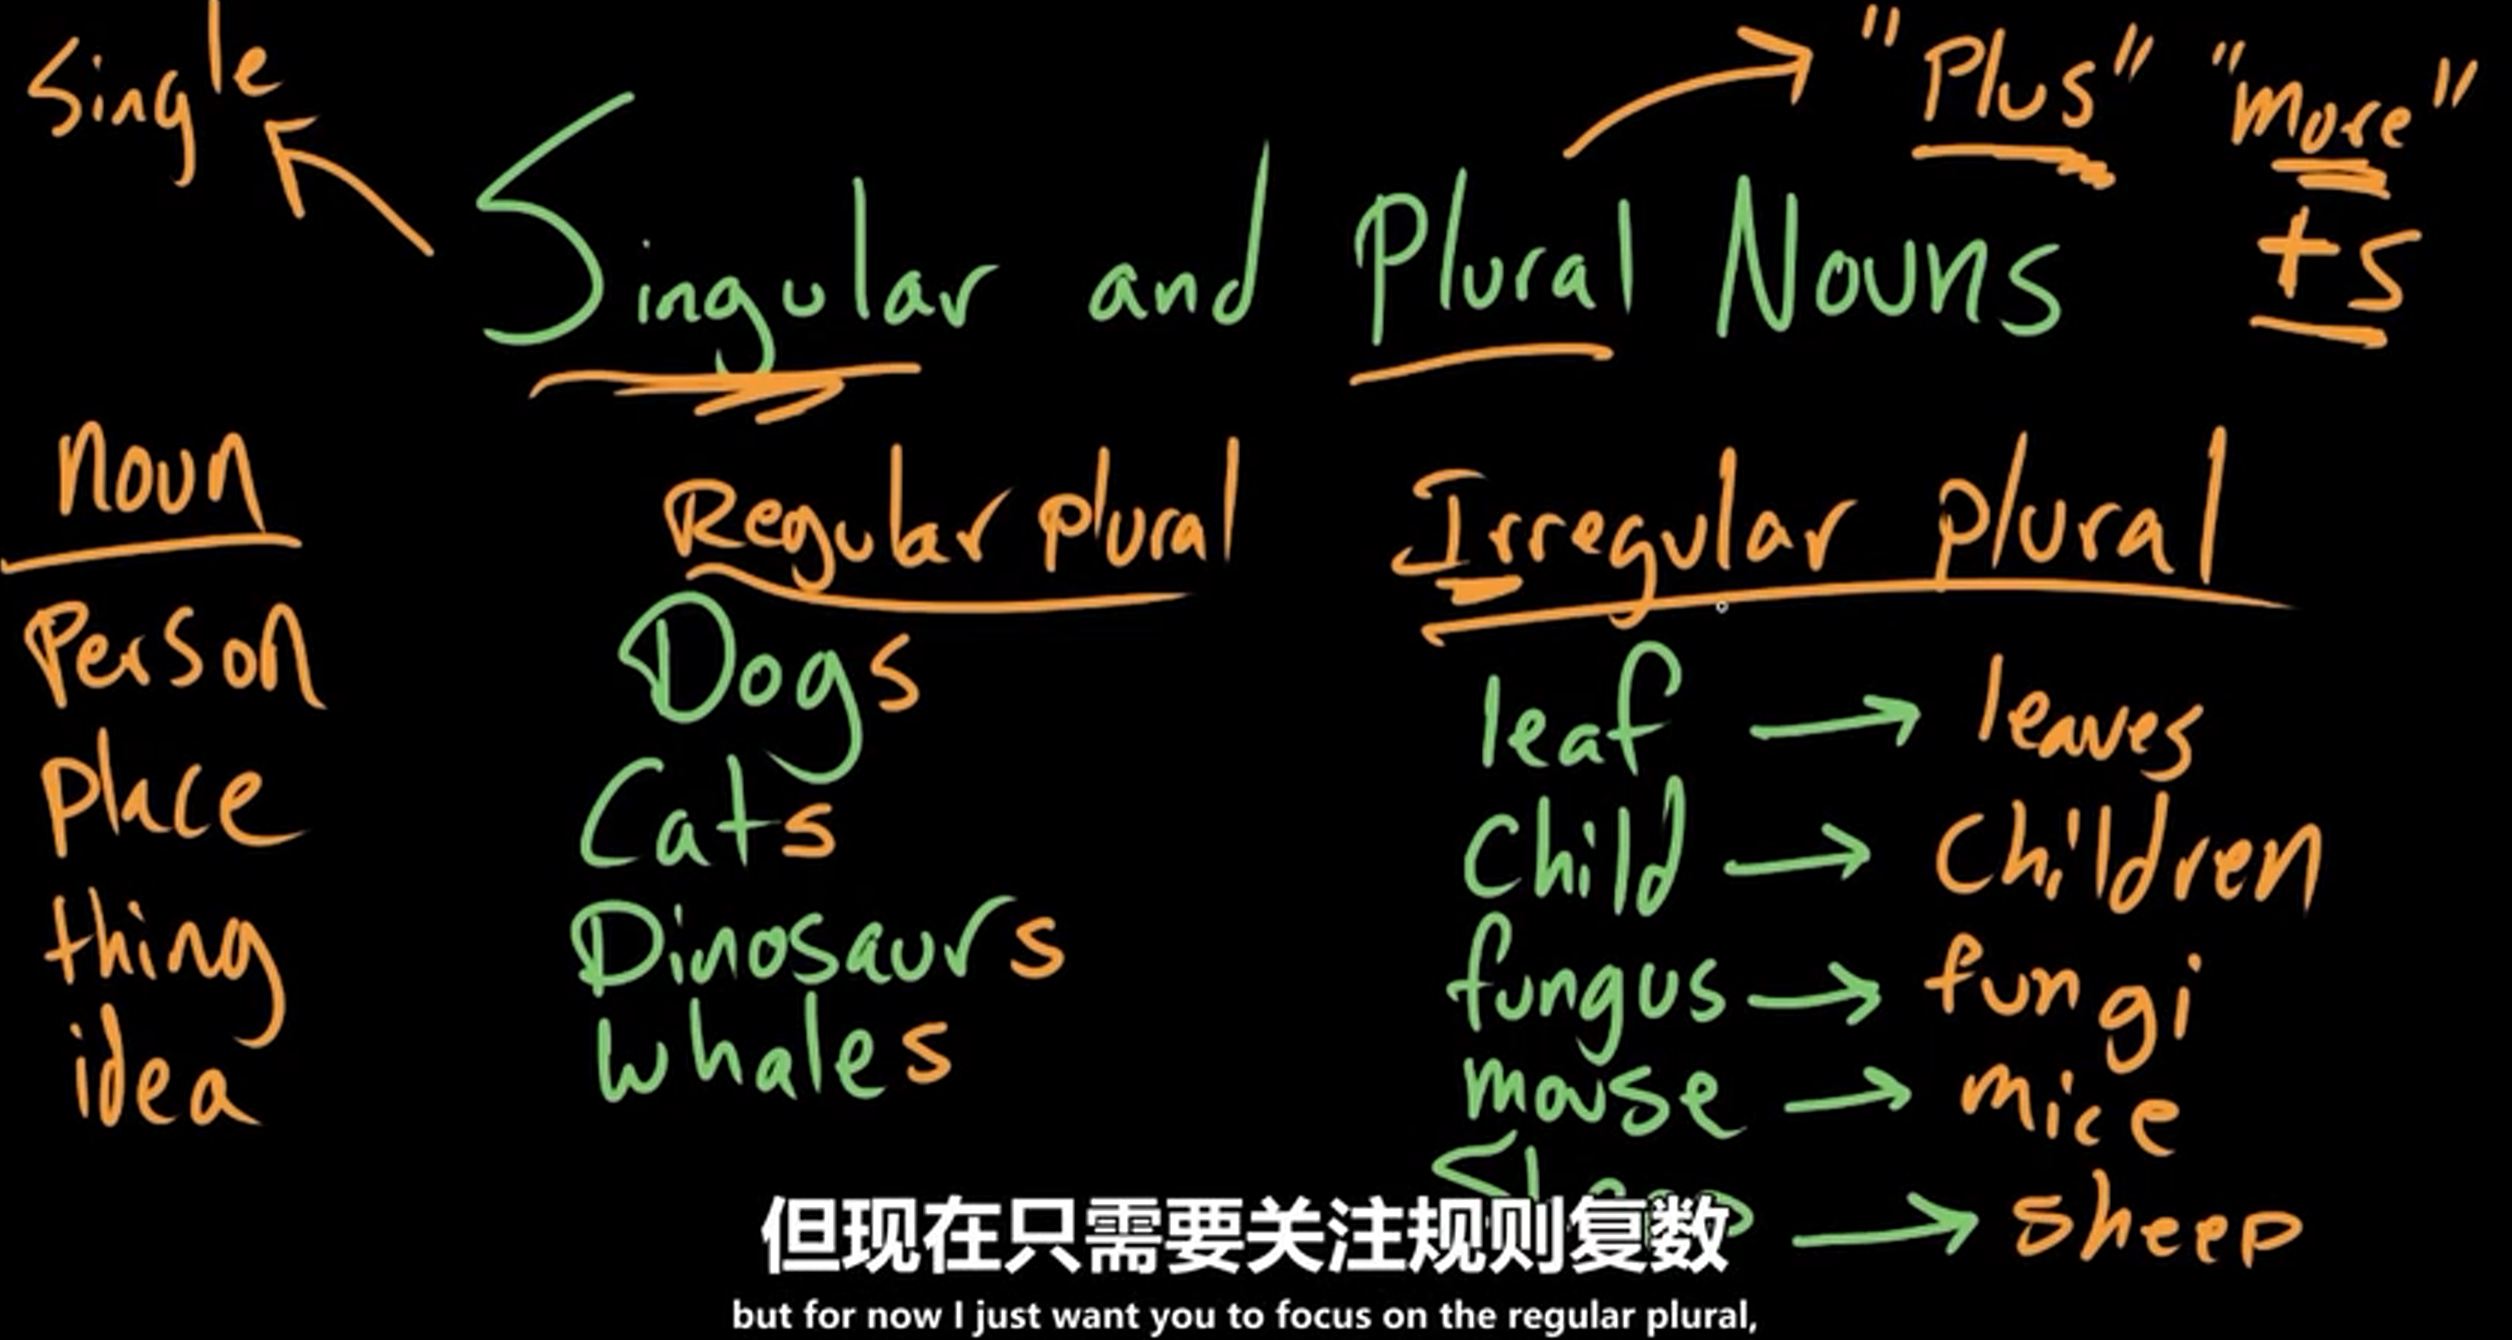 Single
"Plus" "more"
+s
Singular and Plural Nouns
noun
Person
place
thing
idea
Regular plural
Dogs
Cats
Dinosaurs
whales
Irregular plural
leaf → leaves
Child → Children
fungus → fungi
mouse → mice
Sheep → sheep
但现在只需要关注规则复数
but for now I just want you to focus on the regular plural,